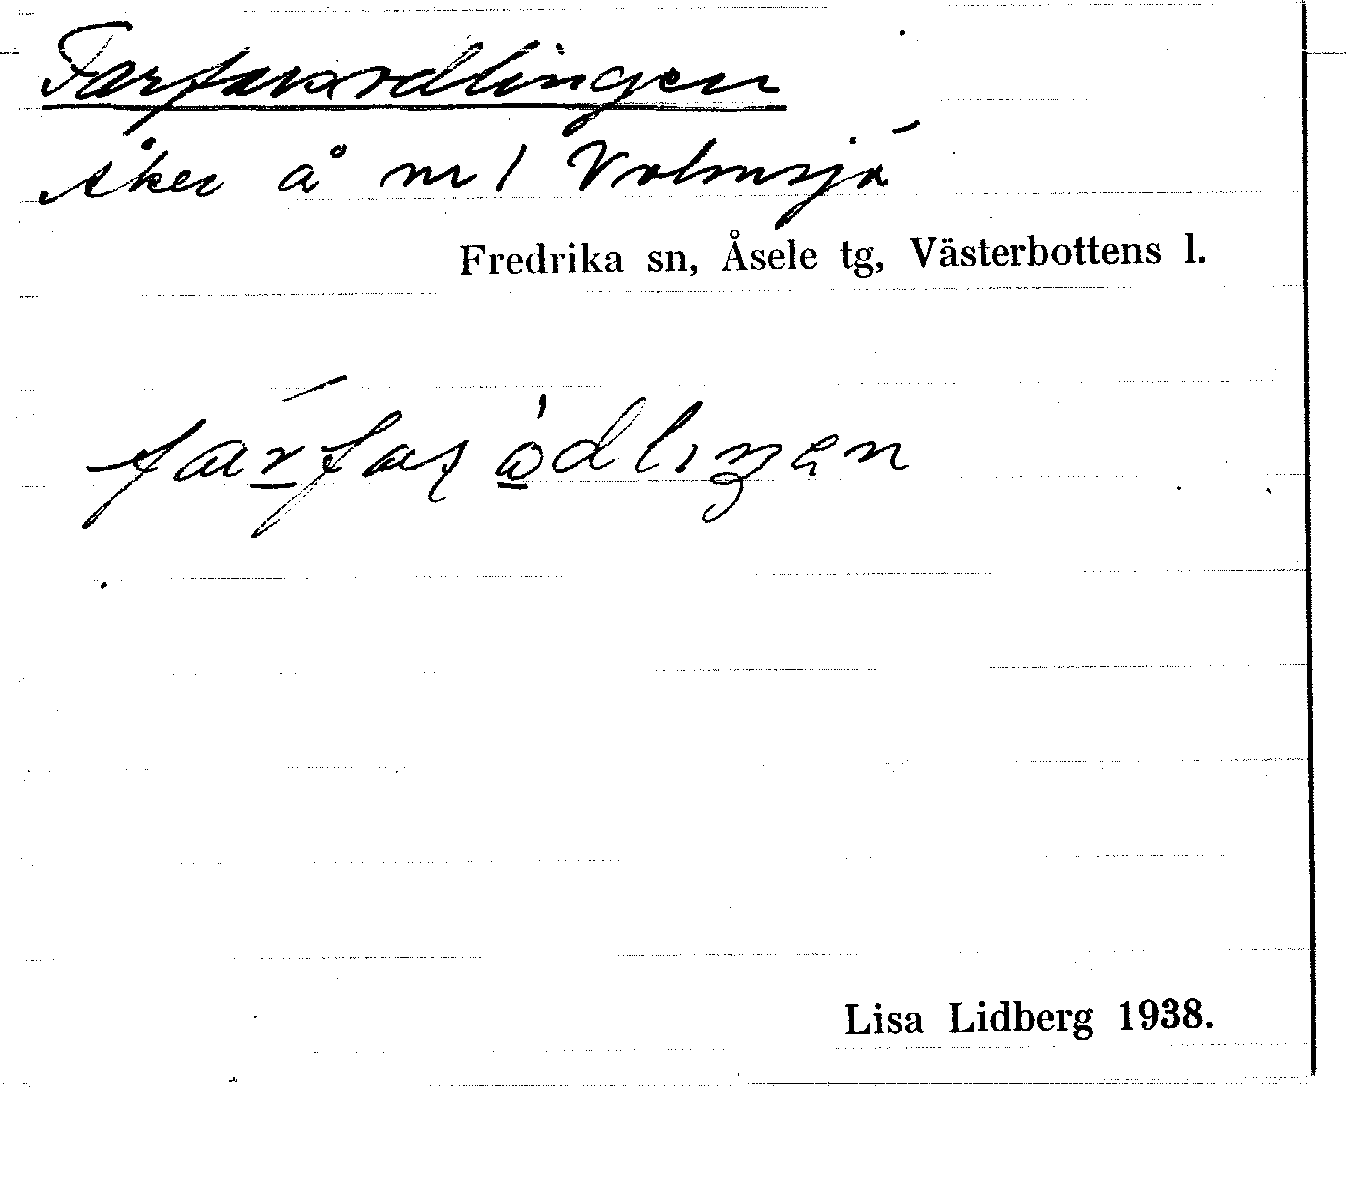 Farfarsodlingen
åker å nr 1 Volmsjö
Fredrika sn, Åsele tg, Västerbottens l.
Lisa Lidberg 1938.